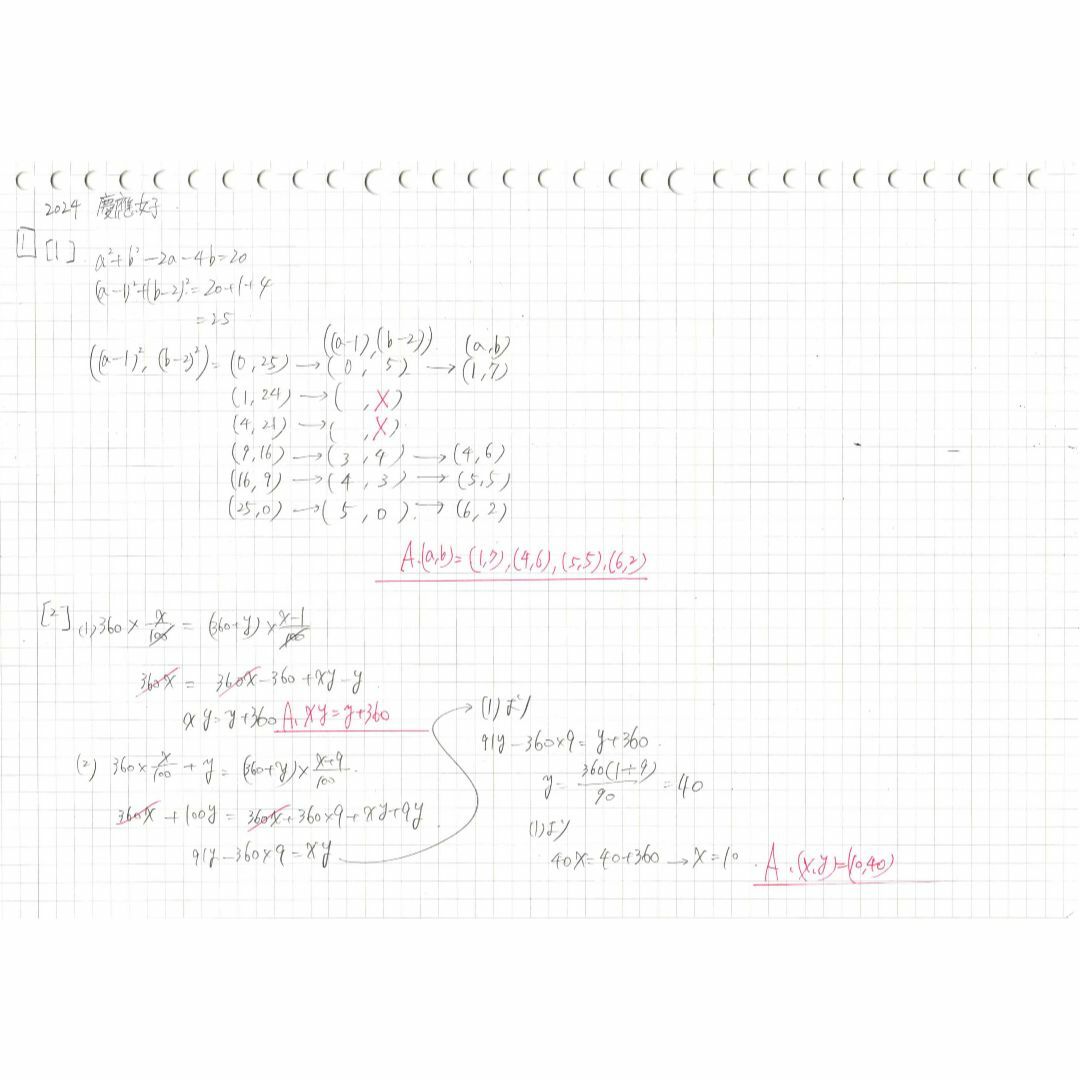 2024 慶應女子
1 [1] a²+b²-2a-4b=20
(a-1)²+(b-2)²=20+1+4
=25
((a-1),(b-2)) (a,b)
((a-1)², (b-2)²)=(0,25)→(0, 5)→(1,7)
(1,24)→( ,X)
(4,21)→( ,X)
(9,16)→(3,4)→(4,6)
(16,9)→(4,3)→(5,5)
(25,0)→(5,0)→(6,2)
A.(a,b)=(1,7),(4,6),(5,5),(6,2)
[2] (1) 360×x/100=(360+y)×(x-1)/100
360x=360x-360+xy-y
xy=y+360 A.xy=y+360
(2) 360×x/100+y=(360+y)×(x+9)/100
360x+100y=360x+360×9+xy+9y
91y-360×9=xy
→(1)より
91y-360×9=y+360
y=360(1+9)/90=40
(1)より
40x=40+360→x=10
A.(x,y)=(10,40)